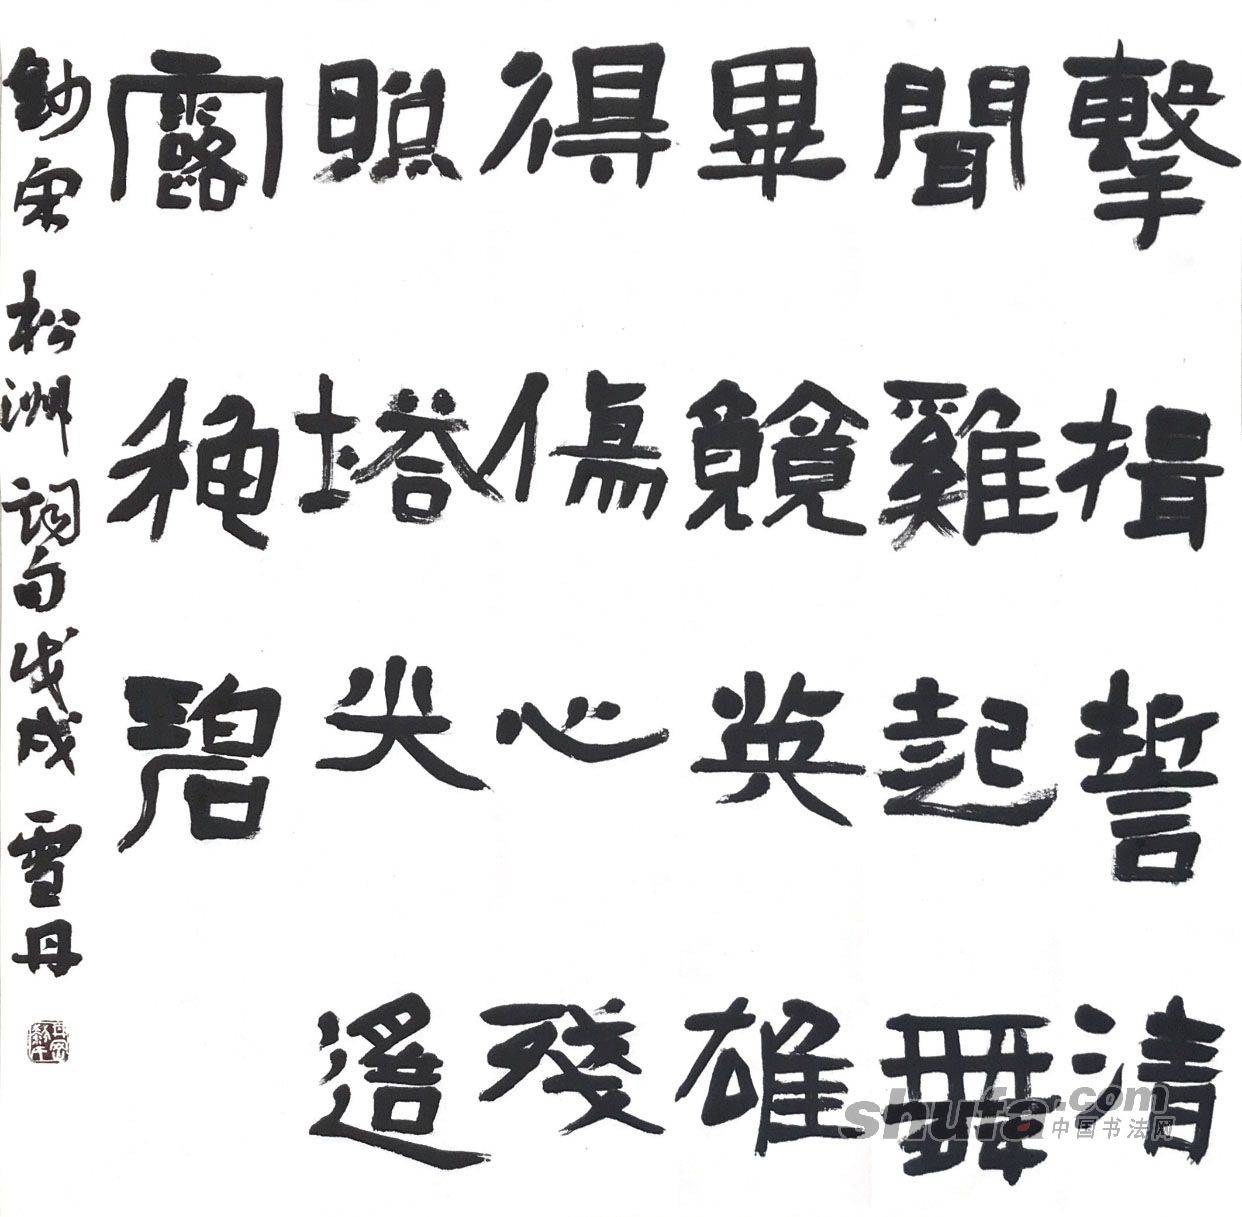 擊揖誓清
聞雞起舞
畢競英雄
得傷心殘
照塔尖遙
露穐碧
鈔宋松洲詞句戊戌雪丹
shufa.com
中国书法网